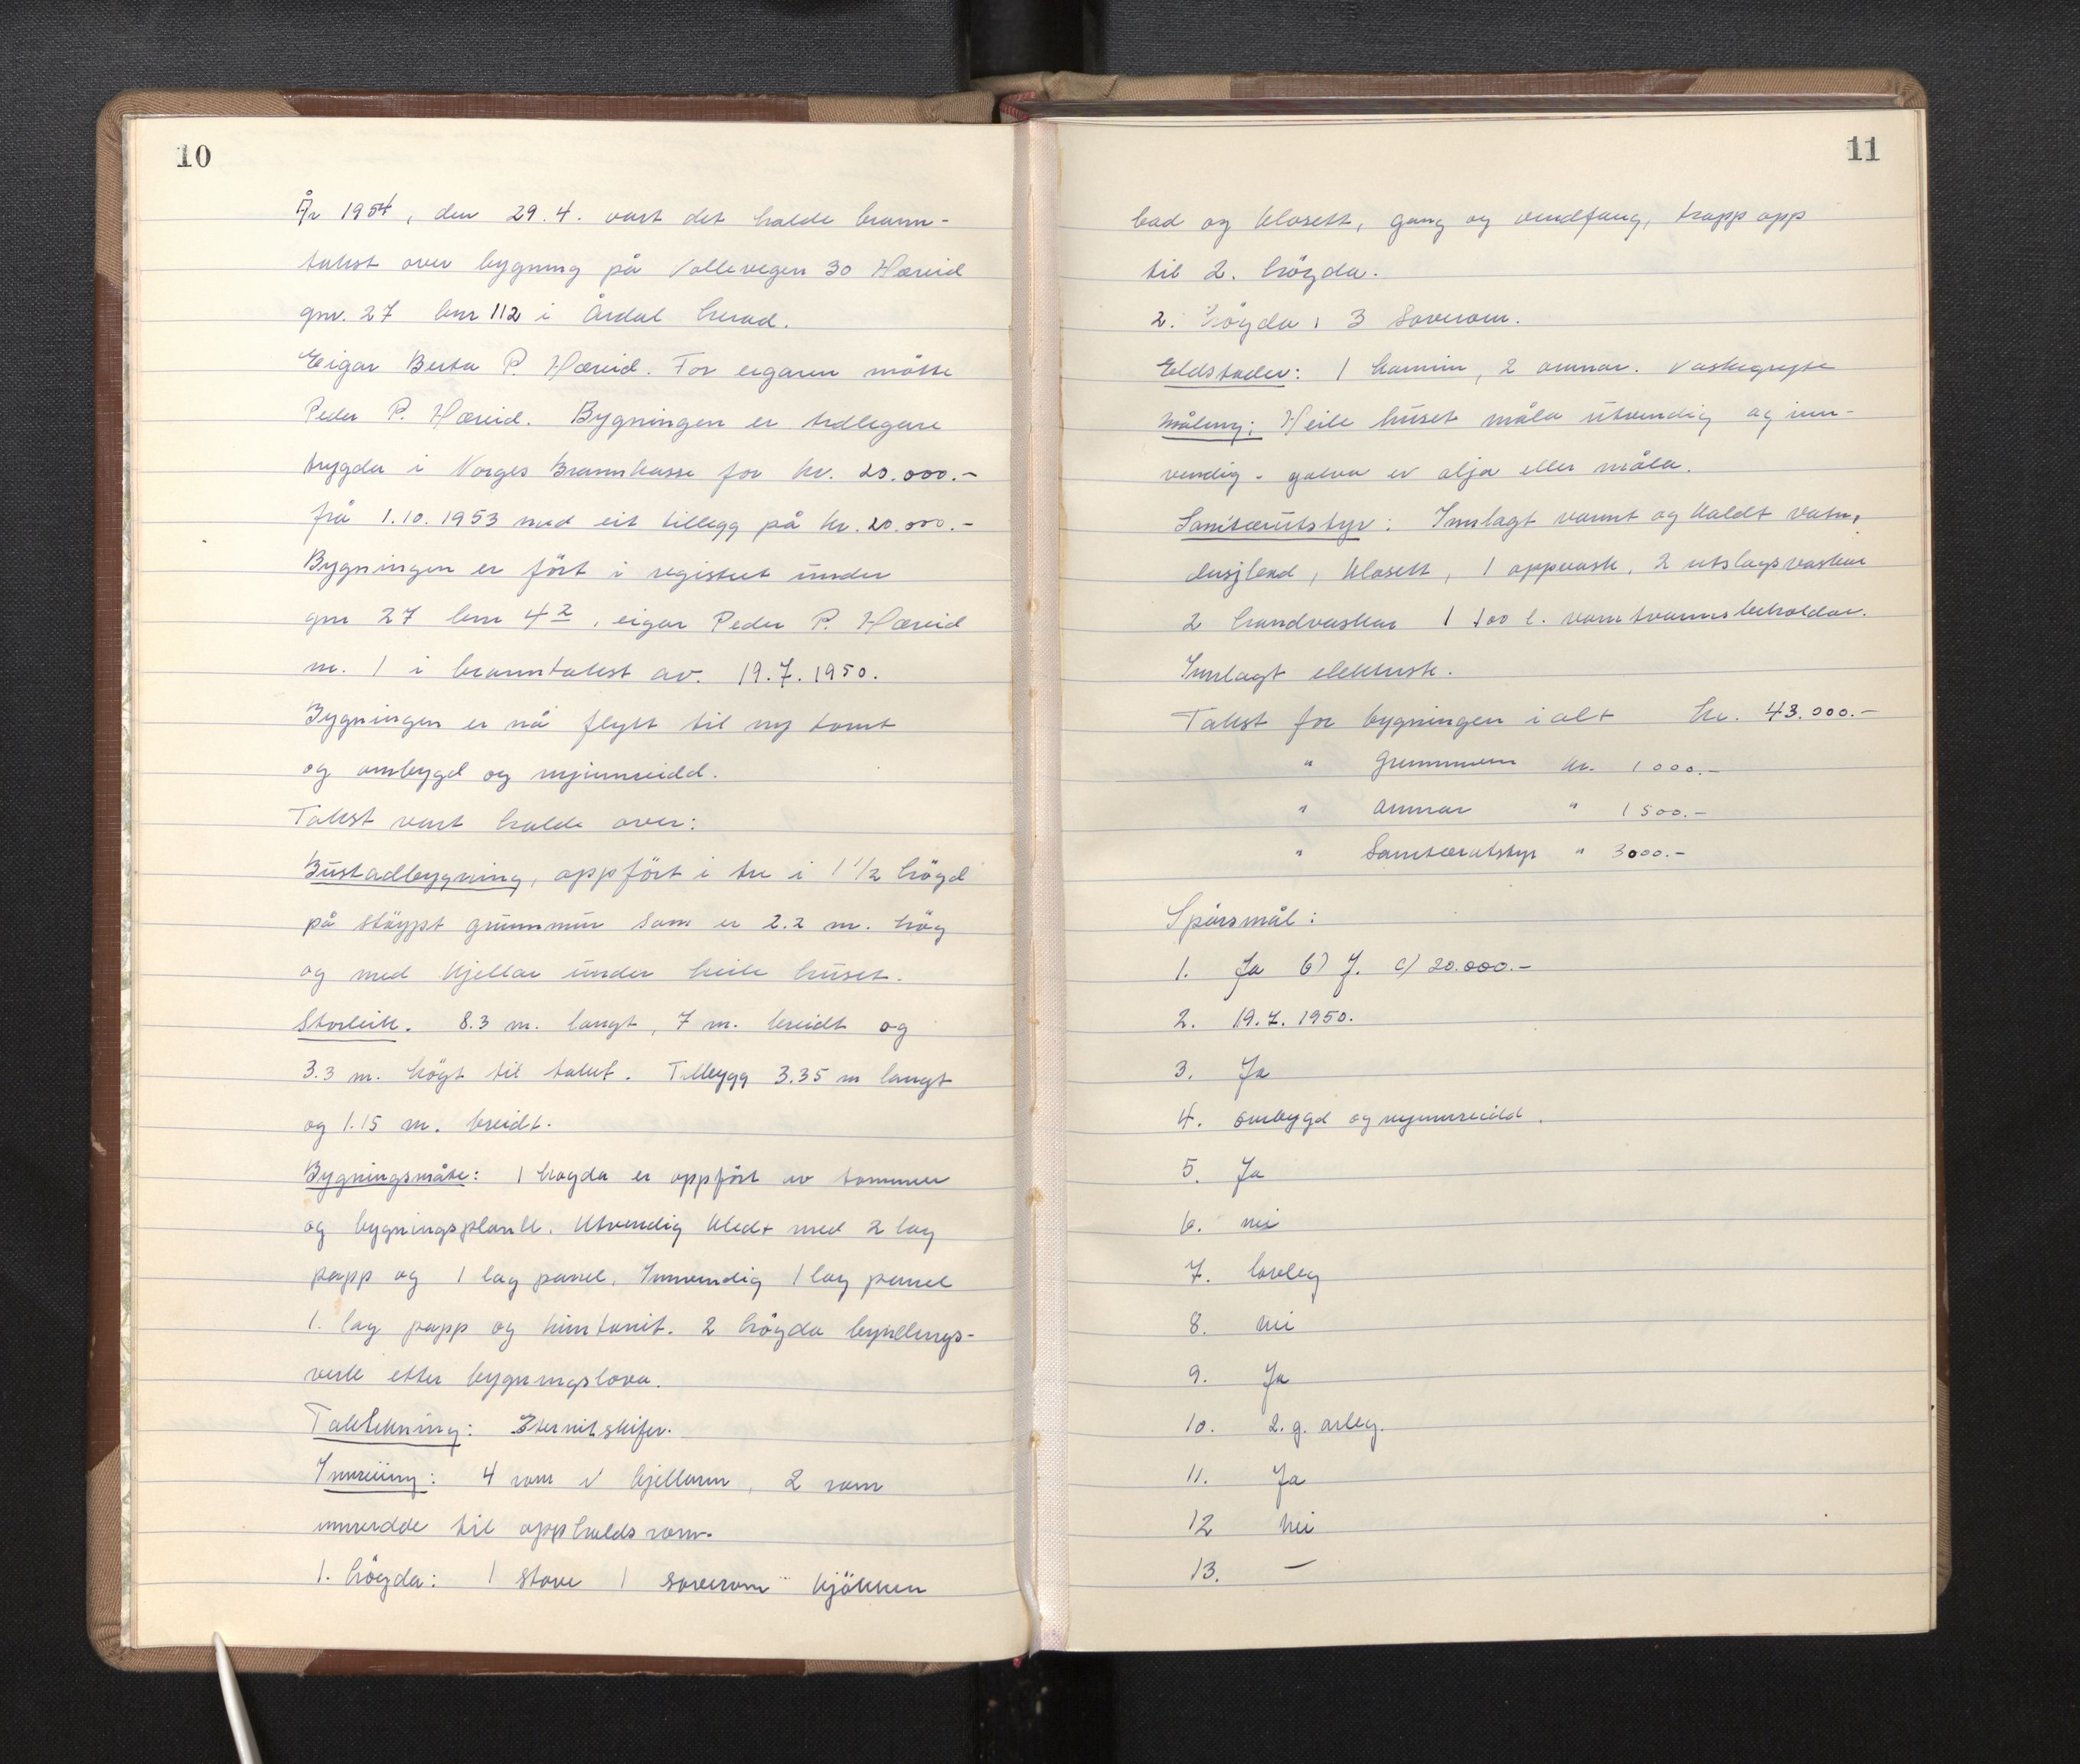 10
År 1954, den 29.4. vart det halde brann-
takst over bygning på Vallevegen 30 Hæreid
gnr. 27 bnr 112 i Årdal herad.
Eigar Berta P. Hæreid. For eigaren møtte
Peder P. Hæreid. Bygningen er tidlegare
trygda i Norges Brannkasse for kr. 20.000.-
frå 1.10.1953 med eit tillegg på kr. 20.000.-
Bygningen er ført i registret under
gnr 27 bnr 42, eigar Peder P. Hæreid
nr. 1 i branntakst av. 19.7.1950.
Bygningen er nå flytt til ny tomt
og ombygd og nyinnreidd.
Takst vart halde over:
Bustadbygning, oppført i tre i 1 1/2 høgd
på støypt grunnmur som er 2.2 m. høg
og med kjellar under heile huset.
Storleik. 8.3 m. langt, 7 m. breidt og
3.3 m. høgt til taket. Tilbygg 3.35 m langt
og 1.15 m. breidt.
Bygningsmåte: 1 høgda er oppført av tømmer
og bygningsplank. Utvendig kledt med 2 lag
papp og 1 lag panel, Innvendig 1 lag panel
1. lag papp og huntonit. 2 høgda byndings-
verk etter bygningslova.
Taktekning: Eternitskifer.
Innreiing: 4 rom i kjellaren, 2 rom
innreidde til oppholdsrom.
1. høgda: 1 stove 1 soverom kjøkken
11
bad og klosett, gang og vindfang, trapp opp
til 2. høgda.
2. høgda: 3 soverom.
Eldstader: 1 kamin, 2 omnar. Vaskegryte
Måling: Heile huset måla utvendig og inn-
vendig - golva er olja eller måla.
Sanitærutstyr: Innlagt varmt og kaldt vatn,
dusjbad, klosett, 1 oppvask, 2 utslagsvaskar
2 handvaskar 1 100 l. varmtvannsbeholdar.
Innlagt elektrisk.
Takst for bygningen i alt kr. 43.000.-
" Grunnmuren kr. 1000.-
" omnar " 1500.-
" Sanitærutstyr " 3000.-
Spørsmål:
1. Ja b) J. c) 20.000.-
2. 19.7.1950.
3. Ja
4. ombygd og nyinnreidd.
5. Ja
6. nei
7. lovleg
8. nei
9. Ja
10. 2. g. årleg.
11. Ja
12 nei
13. —